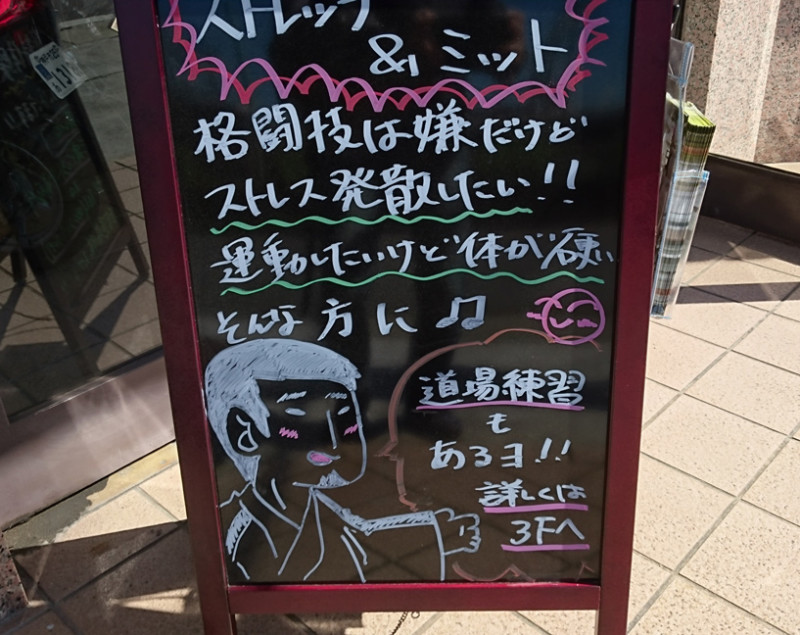 ストレッチ
&ミット
格闘技は嫌だけど
ストレス発散したい!!
運動したいけど体が硬い
そんな方に♫
道場練習
も
あるヨ!!
詳しくは
3Fへ